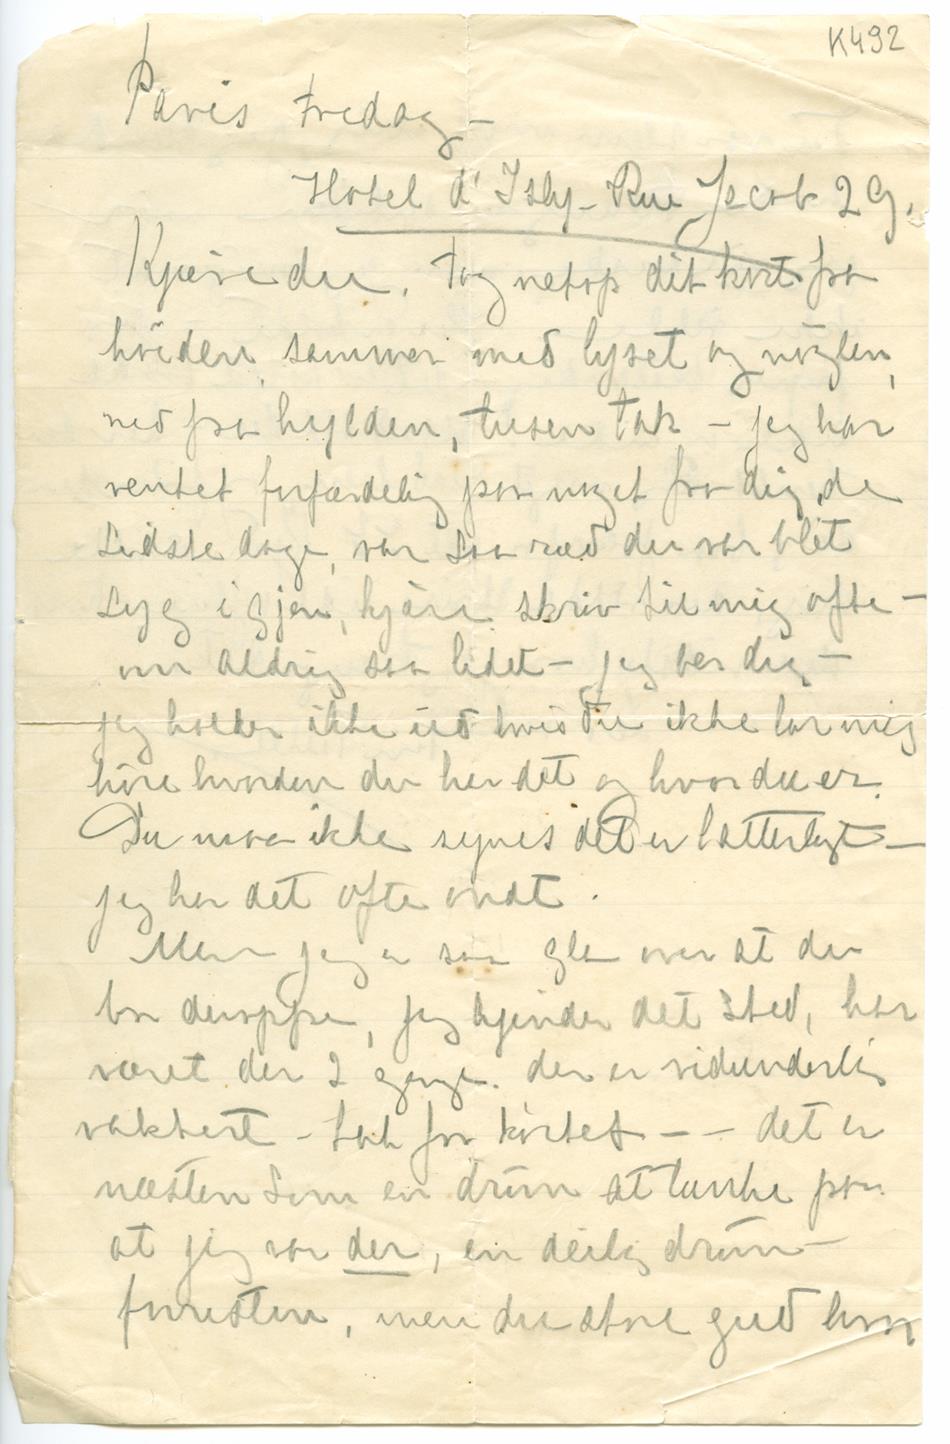 K492
Paris Fredag –
Hotel d'Isly – Rue Jacob 29.
Kjære du. Tog netop dit kort fra
sammen med lyset og nøglen,
ned fra hylden, tusen tak – jeg har
ventet forfærdelig paa noget fra dig de
sidste dage, var saa ræd du var blit
syg igjen, kjære skriv til mig ofte –
om aldrig saa lidet – jeg ber dig –
jeg holder ikke ud hvis du ikke lar mig
høre hvordan du har det og hvor du er.
Du maa ikke synes det er latterligt –
jeg har det ofte ondt.
Men jeg er saa gla over at du
bor deroppe, jeg kjender det sted, har
været der 2 gange. der er vidunderlig
vakkert – tak for kortet – – det er
næsten som en drøm at tænke paa
at jeg var der, en deilig drøm –
forresten, men du store gud hvor